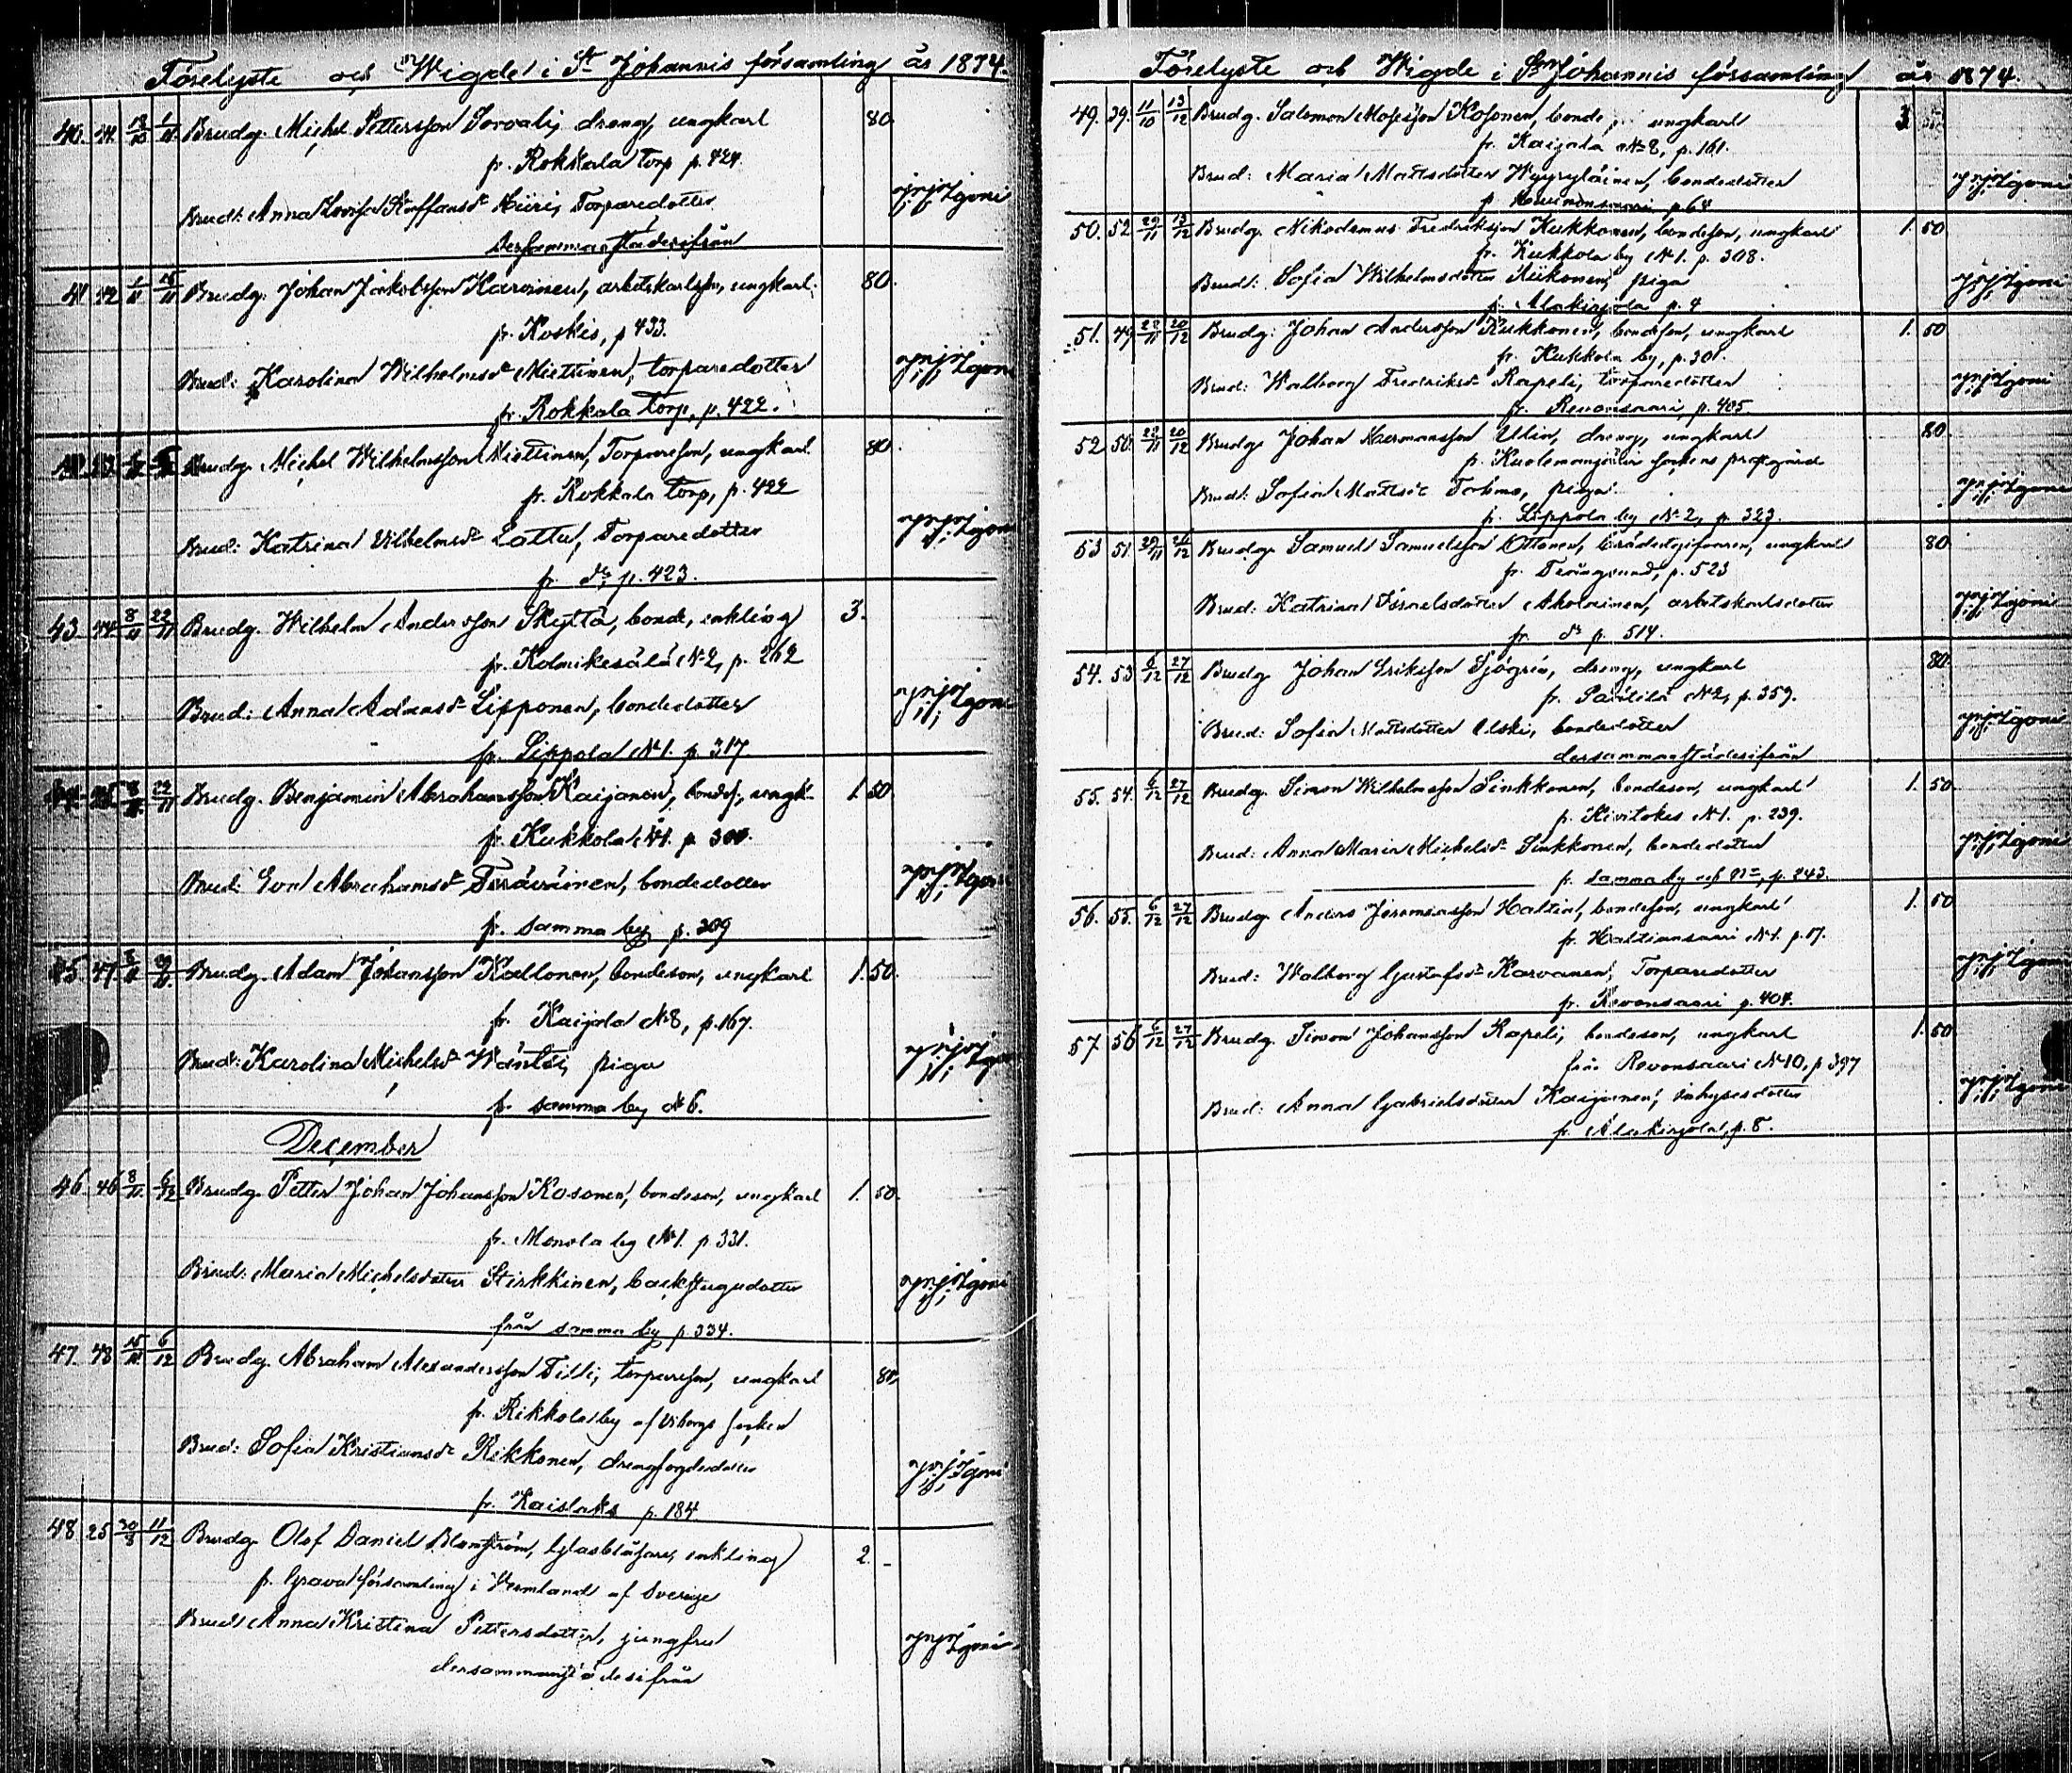 Förelyste och Wigde i St Johannis församling år 1874.
40. 18/10 1/11 Brudg. Michel Pettersson Sorvali, dreng, ungkarl 80
fr. Rokkala torp p. 424.
Brud: Anna Lovisa Staffansdr Kiiri, Torparedotter
dersammastädesifrån
41 42 1/11 15/11 Brudg. Johan Jakobsson Karvinen, arbetskarlsson, ungkarl. 80.
fr. Koskis, p 433.
Brud: Karolina Wilhelmsdr Miettinen, torparedotter
fr. Rokkala torp, p. 422.
Brudg. Michel Wilhelmsson Miettinen, Torpareson, ungkarl 80
fr. Rokkala torp, p. 422
Brud: Katrina Vilhelmsdr Lattu, Torparedotter
fr. do p. 423.
43 44 8/11 22/11 Brudg. Wilhelm Andersson Skyttä, bonde, enkling 3.
fr. Kolmikesälä No 2, p. 262
Brud: Anna Adamsdr Lipponen, bondedotter
fr. Lippola No 1. p. 317.
8/11 22/11 Brudg. Benjamin Abrahamsson Kaijanen, bondes., ungk. 1. 50
fr. Kukkola No 1. p.
Brud: Eva Abrahamsdr bondedotter
fr. samma by p. 309
45 47. 8/11 Brudg. Adam Johansson Kallonen, bondeson, ungkarl 1. 50.
fr. Kaijala No 8, p. 167.
Brud: Karolina Michelsdr Wäntsi, piga
fr. samma by No 6.
December
46. 46 8/11 6/12 Brudg. Petter Johan Johansson Kosonen, bondeson, ungkarl 1. 50.
fr. Monola by No 1. p. 331.
Brud: Maria Michelsdotter Stirkkinen, backstugudotter
från samma by p. 334.
47. 48 15/11 6/12 Brudg. Abraham Alexandersson Tilli, torpareson, ungkarl 80,
fr. Rikkola by af Viborgs socken
Brud: Sofia Kristiansdr Rikkonen,
fr. Kaislaks p. 184
48 25 30/8 11/12 Brudg. Olof Daniel Blomström, Glasblåsare, enkling 2. -
fr. Grava församling i Vermland af Sverige
Brud: Anna Kristina Pettersdotter, jungfru
dersammastädesifrån
Förelyste och Wigde i St Johannis församling år 1874.
49. 39. 11/10 13/12 Brudg. Salomon Mosesson Kosonen, bonde, ungkarl 3
fr. Kaijala No 8, p. 161.
Brud: Maria Mattsdotter Wyyryläinen, bondedotter
p 64
50. 52 29/11 13/12 Brudg. Nikodemus Fredriksson Kukkonen, bondeson, ungkarl 1. 50
fr. Kukkola by No 1. p. 308.
Brud: Sofia Wilhelmsdotter Kiikonen, piga
fr. Alakirjola p. 4
51. 49 22/11 20/12 Brudg: Johan Andersson Kukkonen, bondeson, ungkarl 1. 50
fr. Kukkola by, p. 301.
Brud: Walborg Fredriksdr Rapeli, torparedotter
fr. Revonsaari, p. 405.
52 50. 22/11 20/12 Brudg. Johan Hermansson dreng, ungkarl 80
fr. Kuolemanjärvi sockens prestgård
Brud: Sofia Mattsdr piga
fr. Lippola by No 2, p. 323.
53 51. 29/11 26/12 Brudg. Samuel Samuelsson Ottonen, ungkarl 80
fr. Trångsund, p. 523
Brud: Katrina Israelsdotter Aholainen, arbetskarlsdotter
fr. do p. 514.
54. 53 6/12 27/12 Brudg. Johan Eriksson Sjögren, dreng, ungkarl 80.
fr. Päätilä No 2, p. 359.
Brud: Sofia Mattsdotter Uski, bondedotter
dersammastädesifrån
55. 54. 6/12 27/12 Brudg. Simon Wilhelmsson Sinkkonen, bondeson, ungkarl 1. 50
fr. Kirvitokes No 1. p. 239.
Brud: Anna Maria Michelsdr Sinkkonen, bondedotter
fr. samma by och No, p. 243.
56. 55. 6/12 27/12 Brudg. Anders Jeremiasson Haltia, bondeson, ungkarl 1. 50
fr. Haltiansaari No 1. p. 17.
Brud: Walborg Gustafsdr Karvanen, Torparedotter
fr. Revonsaari p. 404.
57. 56 6/12 27/12 Brudg. Simon Johansson Rapeli, bondeson, ungkarl 1. 50
från Revonsaari No 10, p 397
Brud: Anna Gabrielsdotter Kaijanen, inhysesdotter
fr. Alakirjola, p. 8.